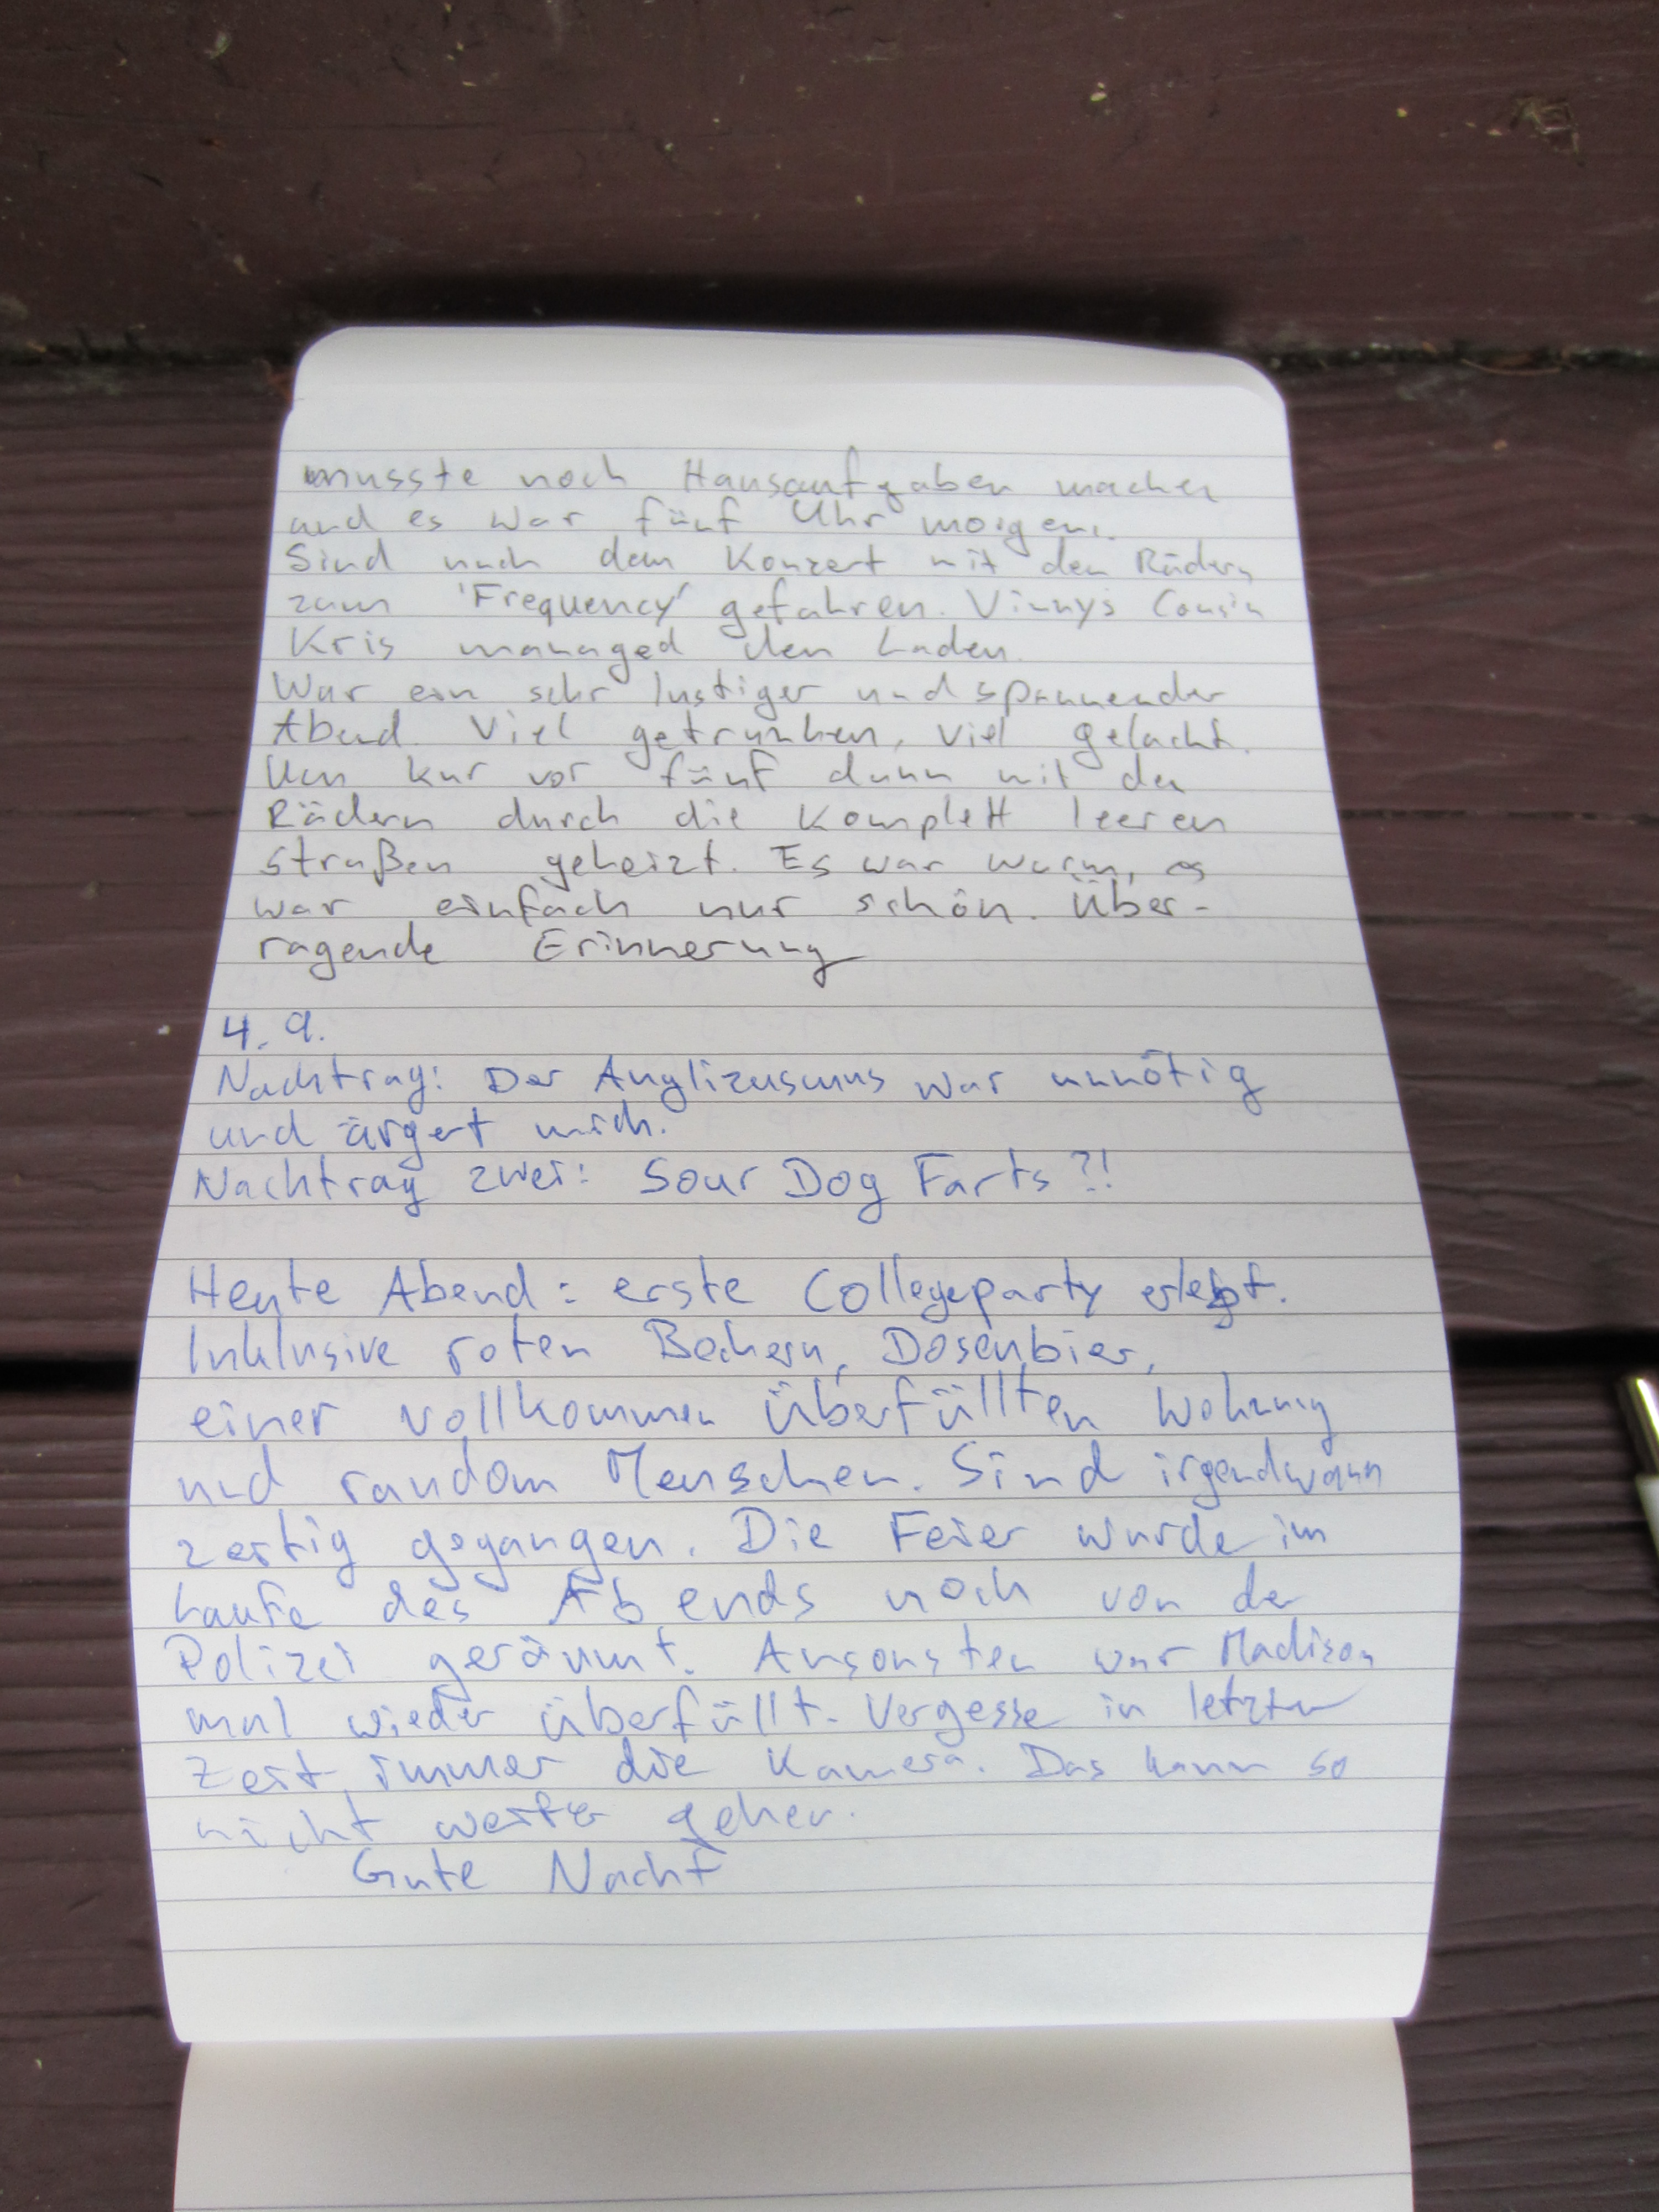 musste noch Hausaufgaben machen
und es war fünf Uhr morgens.
Sind nach dem Konzert mit den Rädern
zum 'Frequency' gefahren. Vinnys Cousin
Kris managed den Laden.
War ein sehr lustiger und spannender
Abend. Viel getrunken, viel gelacht.
Um kur vor fünf dann mit den
Rädern durch die komplett leeren
Straßen geheizt. Es war warm, es
war einfach nur schön. Über-
ragende Erinnerung
4. 9.
Nachtrag: Der Anglizusmus war unnötig
und ärgert mich.
Nachtrag zwei: Sour Dog Farts?!
Heute Abend: erste Collegeparty erlebt.
Inklusive roten Bechern, Dosenbier,
einer vollkommen überfüllten Wohnung
und random Menschen. Sind irgendwann
zeitig gegangen. Die Feier wurde im
Laufe des Abends noch von der
Polizei geräumt. Ansonsten war Madison
mal wieder überfüllt. Vergesse in letzter
Zeit immer die Kamera. Das kann so
nicht weiter gehen.
Gute Nacht